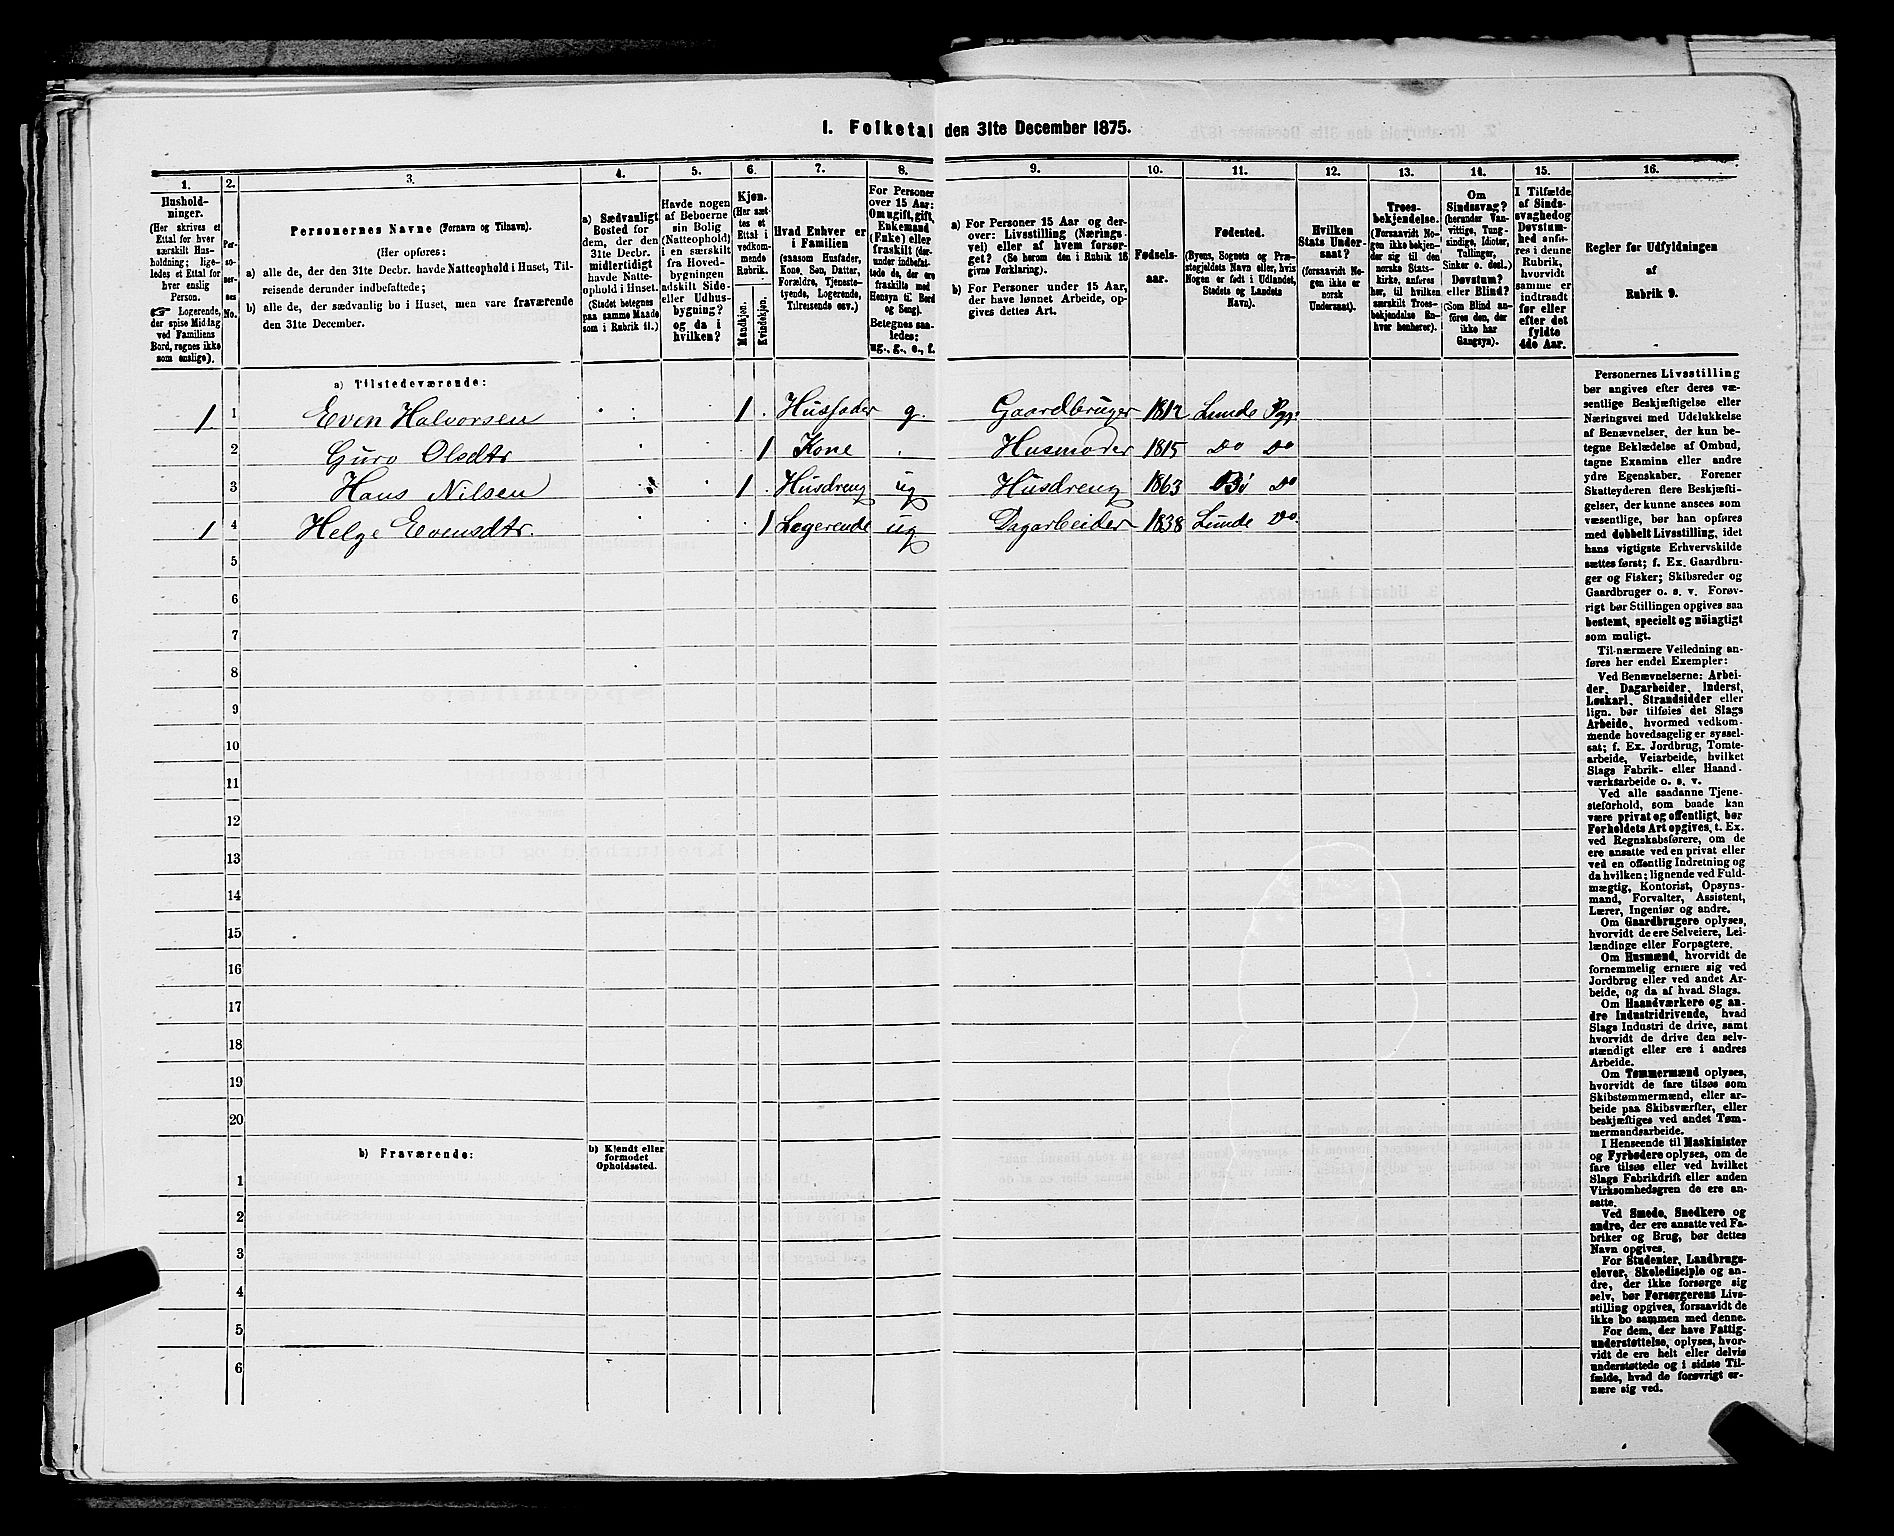 1. Folketal den 31te December 1875.
1.
2.
3.
4.
5.
6.
7.
8.
9.
10.
11.
12.
13.
14.
15.
16.
Hushold-
ninger.
(Her skrives et
Ettal for hver
særskilt Hus-
holdning; lige-
ledes et Ettal for
hver enslig
Person.
☞ Logerende,
der spise Middag
ved Familiens
Bord, regnes ikke
som enslige).
Per-
so-
ner-
nes
No.
Personernes Navne (Fornavn og Tilnavn).
(Her opføres:
a) alle de, der den 31te Decbr. havde Natteophold i Huset, Til-
reisende derunder indbefattede;
b) alle de, der sædvanlig bo i Huset, men vare fraværende
den 31te December.
a) Sædvanligt
Bosted for
dem, der den
31te Decbr.
midlertidigt
havde Natte-
ophold i Huset.
(Stedet betegnes
paa samme Maade
som i Rubrik 11.)
Havde nogen
af Beboerne
sin Bolig
(Natteophold)
i en særskilt
fra Hoved-
bygningen
adskilt Side-
eller Udhus-
bygning?
og da i
hvilken?
Kjøn.
(Her sæt-
tes et
Ettal i
vedkom-
mende
Rubrik.
Mandkjøn.
Kvindekjøn.
Hvad Enhver er
i Familien
(saasom Husfader,
Kone, Søn, Datter,
Forældre, Tjeneste-
tyende, Logerende,
Tilreisende osv.)
For Personer
over 15 Aar:
Om ugift, gift,
Enkemand
(Enke) eller
fraskilt (der-
under indbefat-
tede de, der ere
fraskilte med
Hensyn til Bord
og Seng).
Betegnes saa-
ledes:
ug., g., e., f.
a) For Personer 15 Aar og der-
over: Livsstilling (Nærings-
vei) eller af hvem forsør-
get? (Se herom den i Rubrik 16
givne Forklaring).
b) For Personer under 15 Aar,
der have lønnet Arbeide, op-
gives dettes Art.
Fødsels-
aar.
Fødested.
(Byens, Sognets og Præ-
stegjeldets Navn eller, hvis
Nogen er født i Udlandet,
Stedets og Landets
Navn).
Hvilken
Stats Under-
saat?
(forsaavidt No-
gen ikke er
norsk
Undersaat).
Troes-
bekjendelse.
(Forsaavidt No-
gen ikke bekjen-
der sig til den
norske Stats-
kirke, anføres
her, til hvilken
særskilt Troes-
bekjendelse En-
hver henhører).
Om
Sindssvag?
(herunder Van-
vittige, Tung-
sindige, Idioter,
Tullinger,
Sinker o. desl.)
Døvstum?
eller Blind?
(Som Blind an-
føres den, der
ikke har
Gangsyn).
I Tilfælde
af Sinds-
svaghed og
Døvstum-
hed anfø-
res i denne
Rubrik,
hvorvidt
samme er
indtraadt
før eller
efter det
fyldte
4de Aar.
Regler for Udfyldningen
af
Rubrik 9.
a) Tilstedeværende:
1 1 Even Halvorsen 1 Husfader g. Gaardbruger 1812 Lunde Pgj:
2 Guro Olsdtr 1 Kone Husmoder 1815 Do Do
3 Hans Nilsen 1 Husdreng ug Husdreng 1863 Bö Do
1 4 Helge Evensdtr. 1 Logerende ug Dagarbeider 1838 Lunde Do.
5
6
7
8
9
10
11
12
13
14
15
16
17
18
19
20
b) Fraværende:
b) Kjendt eller
formodet
Opholdssted.
1
2
3
4
5
6
Personernes Livsstilling
bør angives efter deres væ-
sentlige Beskjæftigelse eller
Næringsvei med Udelukkelse
af Benævnelser, der kun be-
tegne Beklædelse af Ombud,
tagne Examina eller andre
ydre Egenskaber. Forener
Skatteyderen flere Beskjæfti-
gelser, der kunne ansees som
væsentlige, bør han opføres
med dobbelt Livsstilling, idet
hans vigtigste Erhvervskilde
sættes først; f. Ex. Gaardbru-
ger og Fisker; Skibsreder og
Gaardbruger o. s. v. Forøv-
rigt bør Stillingen opgives saa
bestemt, specielt og nöiagtigt
som muligt.
Til nærmere Veiledning an-
føres her endel Exempler:
Ved Benævnelserne: Arbei-
der, Dagarbeider, Inderst,
Løskarl, Strandsidder eller
lign. bør tilføies det Slags
Arbeide, hvormed vedkom-
mende hovedsagelig er syssel-
sat; f. Ex. Jordbrug, Tomte-
arbeide, Veiarbeide, hvilket
Slags Fabrik- eller Haand-
værksarbeide o. s. v.
Ved alle saadanne Tjene-
steforhold, som baade kan
være privat og offentligt, bør
Forholdets Art opgives, t. Ex.
ved Regnskabsførere, om de
ere ansatte ved en privat eller
ved en offentlig Indretning og
da hvilken; lignende ved Fuld-
mægtig, Kontorist, Opsyns-
mand, Forvalter, Assistent,
Lærer, Ingeniør og andre.
Om Gaardbrugere oplyses,
hvorvidt de ere Selveiere, Lei-
lændinge eller Forpagtere.
Om Husmænd, hvorvidt de
fornemmelig ernære sig ved
Jordbrug eller ved andet Ar-
beide, og da af hvad Slags.
Om Haandværkere og an-
dre Industridrivende, hvad
Slags Industri de drive, samt
hvorvidt de drive den selv-
stændigt eller ere i andres
Arbeide.
Om Tømmermænd oplyses,
hvorvidt de fare tilsøs som
Skibstømmermænd, eller ar-
beide paa Skibsværfter, eller
beskjæftiges ved andet Tøm-
mermandsarbeide.
I Henseende til Maskinister
og Fyrbødere oplyses, om de
fare tilsøs eller ved hvilket
Slags Fabrikdrift eller anden
Virksomhedsgren de ere an-
satte.
Ved Smede, Snedkere og
andre, der ere ansatte ved Fa-
briker og Brug, bør dettes
Navn opgives.
For Studenter, Landbrugs-
elever, Skoledisciple og an-
dre, der ikke forsørge sig
selv, bør Forsørgerens Livs-
stilling opgives, forsaavidt de
ikke bo sammen med denne.
For dem, der have Fattig-
understøttelse, oplyses, hvor-
vidt de ere helt eller delvis
understøttede og i sidste Til-
fælde, hvad de forøvrigt er-
nære sig ved.